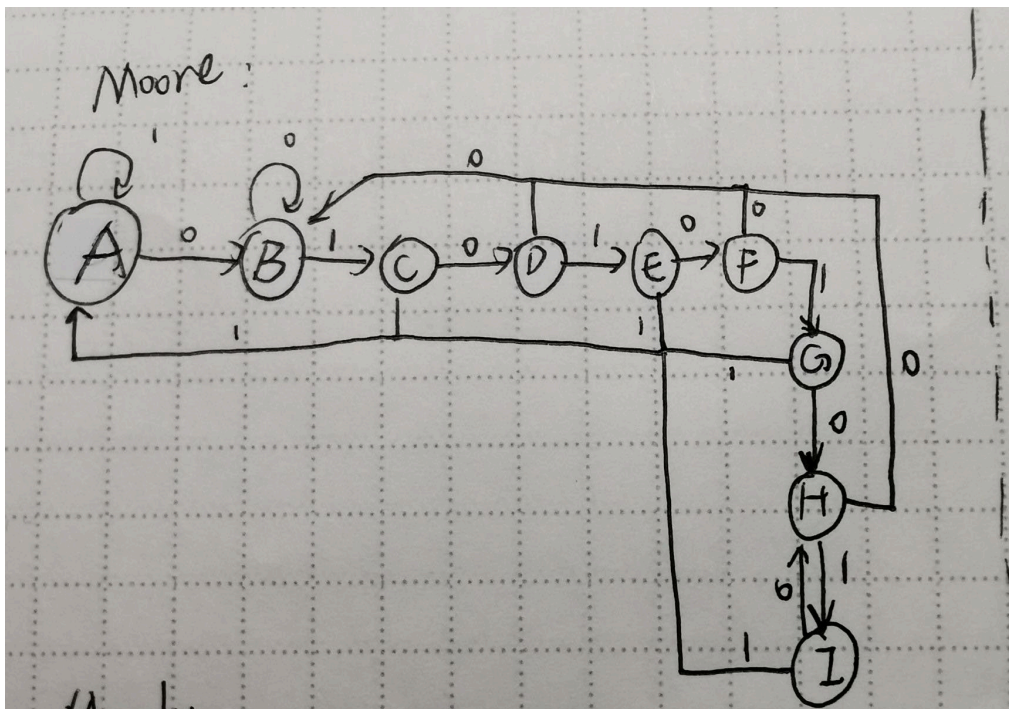 Moore:
1
0
0
A 0 B 1 C 0 D 1 E 0 F 0
1
1 1 1 G 0
0
H
0 1
1 I